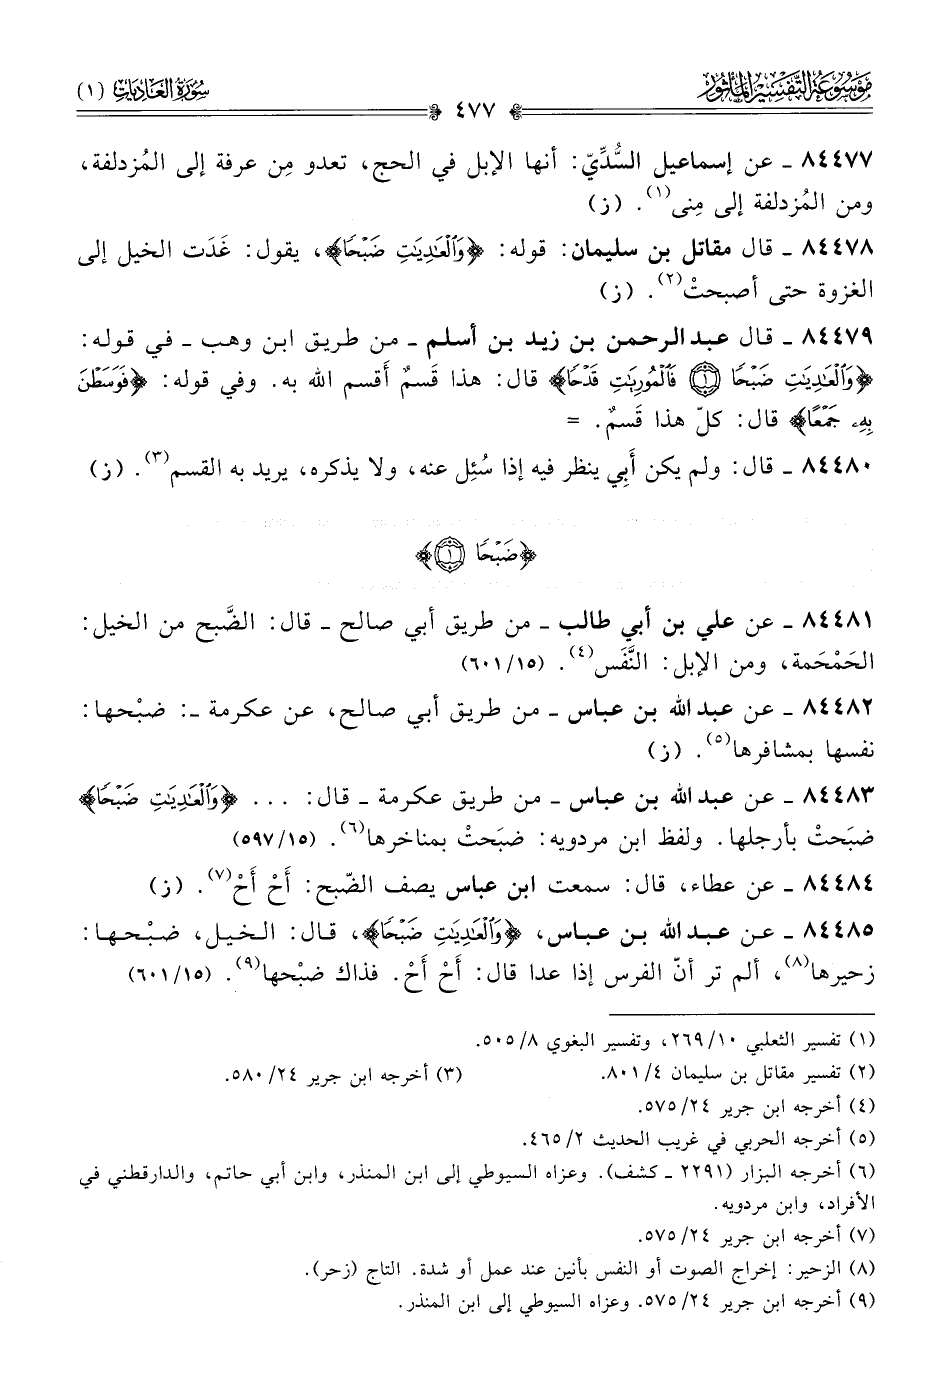 موسوعة التفسير المأثور
سورة العاديات (١)
٤٧٧
٨٤٤٧٧ ـ عن إسماعيل السُّدِّيّ: أنها الإبل في الحج، تعدو مِن عرفة إلى المُزدلفة،
ومن المُزدلفة إلى مِنى(١). (ز)
٨٤٤٧٨ ـ قال مقاتل بن سليمان: قوله: ﴿وَٱلْعَٰدِيَٰتِ ضَبْحًا﴾، يقول: غَدَت الخيل إلى
الغزوة حتى أصبحتْ(٢). (ز)
٨٤٤٧٩ ـ قال عبدالرحمن بن زيد بن أسلم ـ من طريق ابن وهب ـ في قوله:
﴿وَٱلْعَٰدِيَٰتِ ضَبْحًا ۝١ فَٱلْمُورِيَٰتِ قَدْحًا﴾ قال: هذا قَسمٌ أَقسم الله به. وفي قوله: ﴿فَوَسَطْنَ
بِهِۦ جَمْعًا﴾ قال: كلّ هذا قَسمٌ. =
٨٤٤٨٠ ـ قال: ولم يكن أَبِي ينظر فيه إذا سُئِل عنه، ولا يذكره، يريد به القسم(٣). (ز)
﴿ضَبْحًا ۝١﴾
٨٤٤٨١ ـ عن علي بن أبي طالب ـ من طريق أبي صالح ـ قال: الضَّبح من الخيل:
الحَمْحَمة، ومن الإبل: النَّفَس(٤). (٦٠١/١٥)
٨٤٤٨٢ ـ عن عبدالله بن عباس ـ من طريق أبي صالح، عن عكرمة ـ: ضبْحها:
نفسها بمشافرها(٥). (ز)
٨٤٤٨٣ ـ عن عبدالله بن عباس ـ من طريق عكرمة ـ قال: ... ﴿وَٱلْعَٰدِيَٰتِ ضَبْحًا﴾
ضبَحتْ بأرجلها. ولفظ ابن مردويه: ضبَحتْ بمناخرها(٦). (٥٩٧/١٥)
٨٤٤٨٤ ـ عن عطاء، قال: سمعت ابن عباس يصف الضّبح: أَحْ أَحْ(٧). (ز)
٨٤٤٨٥ ـ عن عبدالله بن عباس، ﴿وَٱلْعَٰدِيَٰتِ ضَبْحًا﴾، قال: الخيل، ضبْحها:
زحيرها(٨)، ألم تر أنّ الفرس إذا عدا قال: أَحْ أَحْ. فذاك ضبْحها(٩). (٦٠١/١٥)
(١) تفسير الثعلبي ٢٦٩/١٠، وتفسير البغوي ٥٠٥/٨.
(٢) تفسير مقاتل بن سليمان ٨٠١/٤.
(٣) أخرجه ابن جرير ٥٨٠/٢٤.
(٤) أخرجه ابن جرير ٥٧٥/٢٤.
(٥) أخرجه الحربي في غريب الحديث ٤٦٥/٢.
(٦) أخرجه البزار (٢٢٩١ ـ كشف). وعزاه السيوطي إلى ابن المنذر، وابن أبي حاتم، والدارقطني في
الأفراد، وابن مردويه.
(٧) أخرجه ابن جرير ٥٧٥/٢٤.
(٨) الزحير: إخراج الصوت أو النفس بأنين عند عمل أو شدة. التاج (زحر).
(٩) أخرجه ابن جرير ٥٧٥/٢٤. وعزاه السيوطي إلى ابن المنذر.